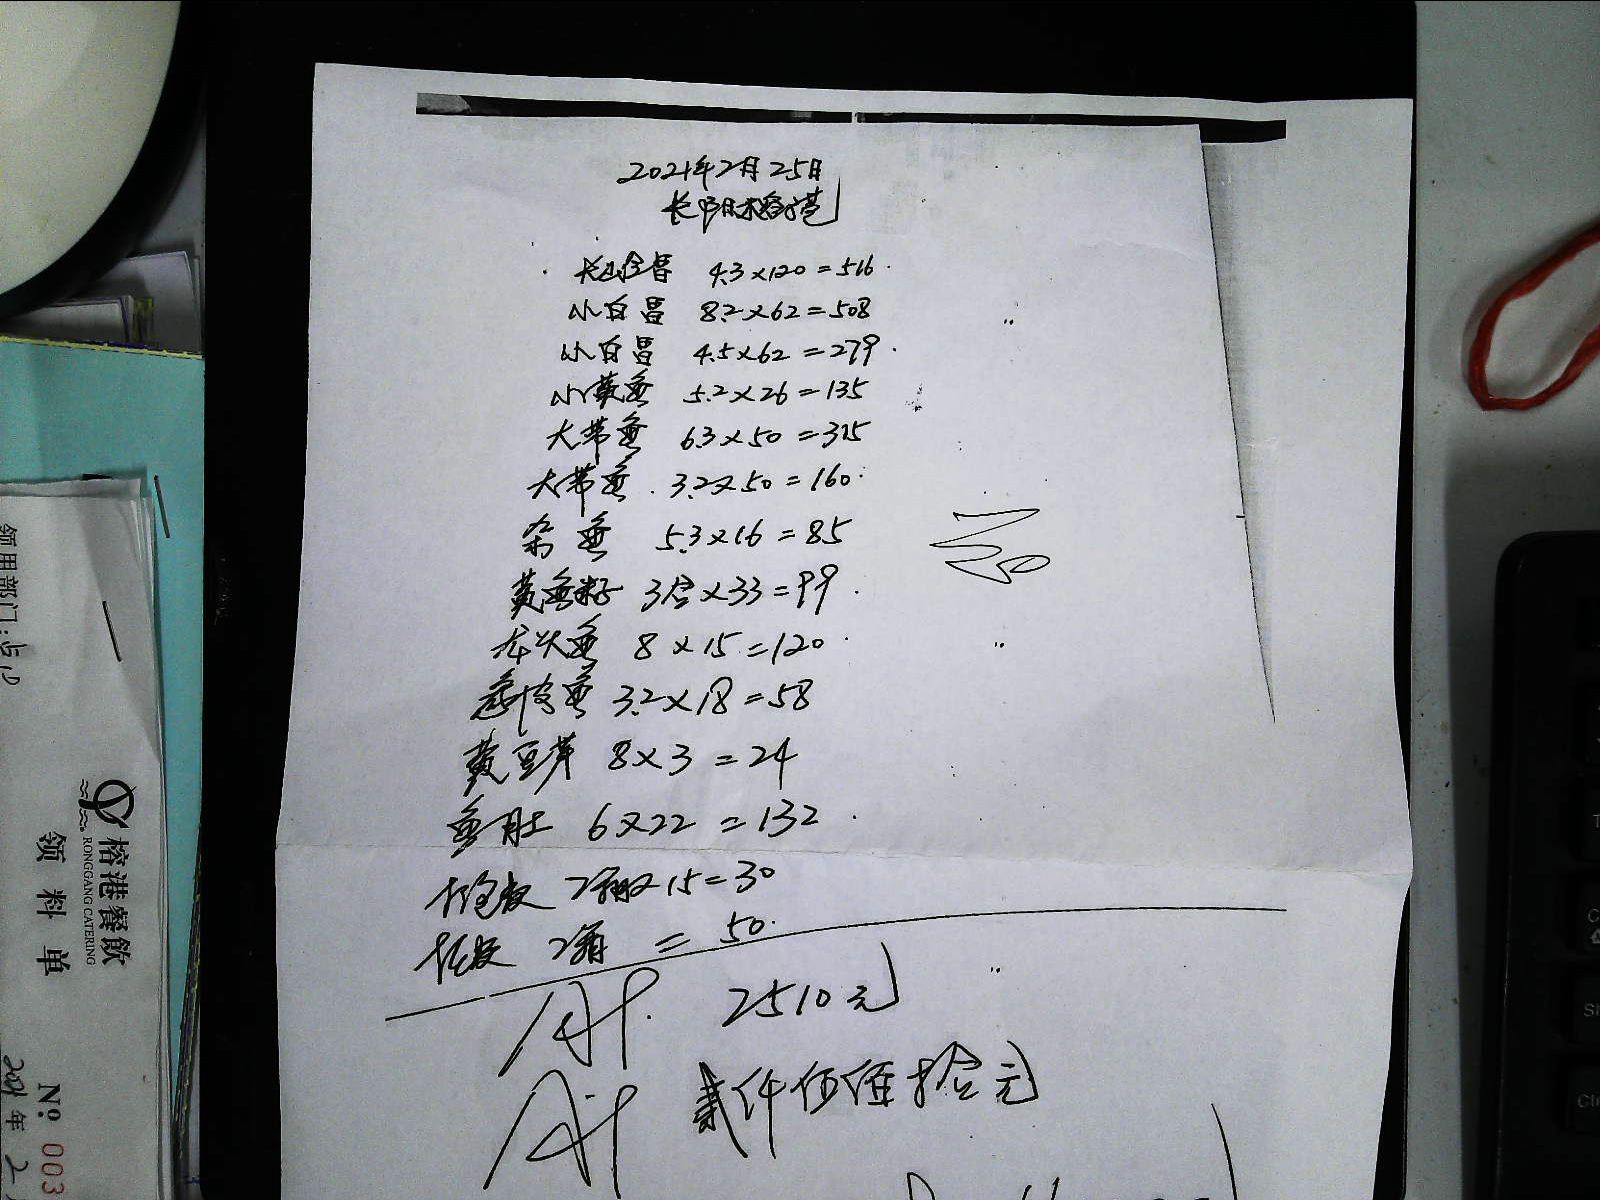 2021年2月25日
长阳榕港
长山金昌 4.3×120=516
小白昌 8.2×62=508
小白昌 4.5×62=279
小黄鱼 5.2×26=135
大带鱼 6.3×50=315
大带鱼 3.2×50=160
杂鱼 5.3×16=85
黄鱼籽 3合×33=99
龙头鱼 8×15=120
3.2×18=58
黄豆芽 8×3=24
鱼肚 6×22=132
2箱×15=30
2箱=50
2510元
贰仟伍佰壹拾元
领用部门:
榕港餐飲
RONGGANG CATERING
领料单
№ 003
2021年2